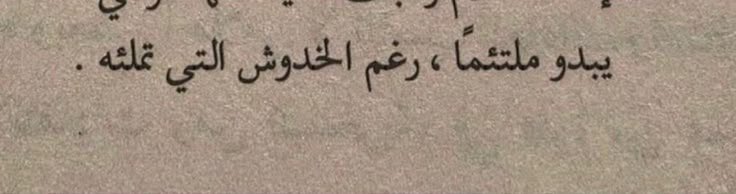 يبدو ملتئمًا ، رغم الخدوش التي تملئه .